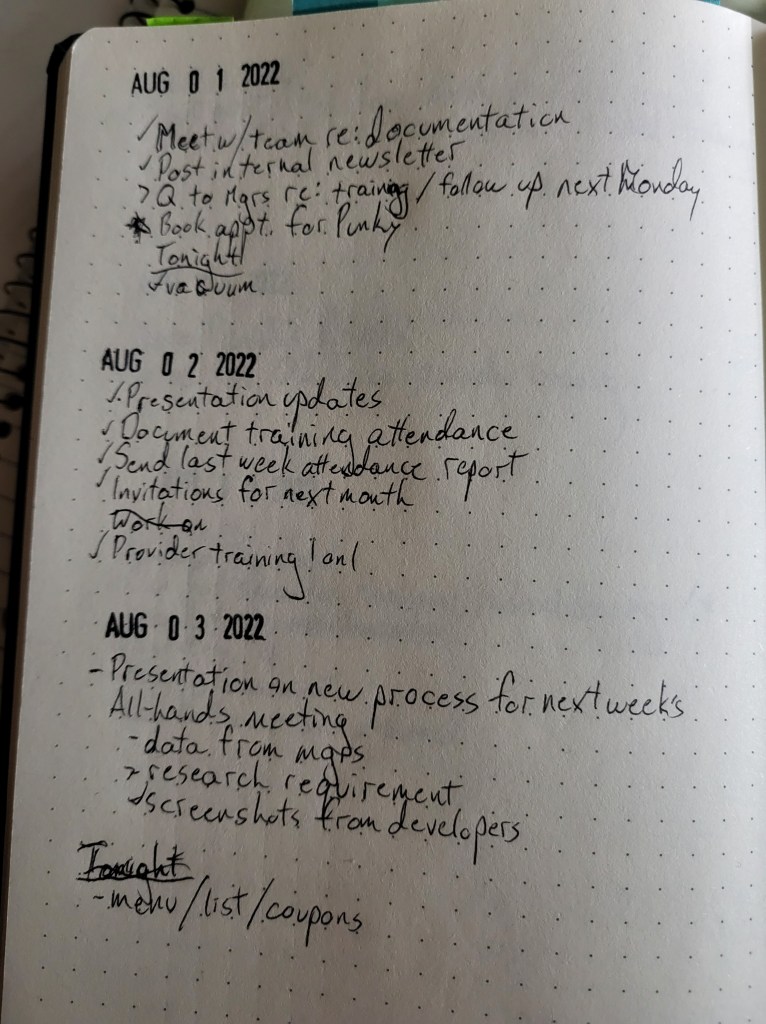 AUG 0 1 2022
✓ Meet w/team re: documentation
✓ Post internal newsletter
> Q to Mgrs re: training / follow up next Monday
* Book appt. for Punky
Tonight
✓ vacuum
AUG 0 2 2022
✓ Presentation updates
✓ Document training attendance
✓ Send last week attendance report
✓ Invitations for next month
Work on
✓ Provider training 1 on 1
AUG 0 3 2022
- Presentation on new process for next week's
All-hands meeting
- data from mgrs
> research requirement
✓ screenshots from developers
Tonight
- menu/list/coupons